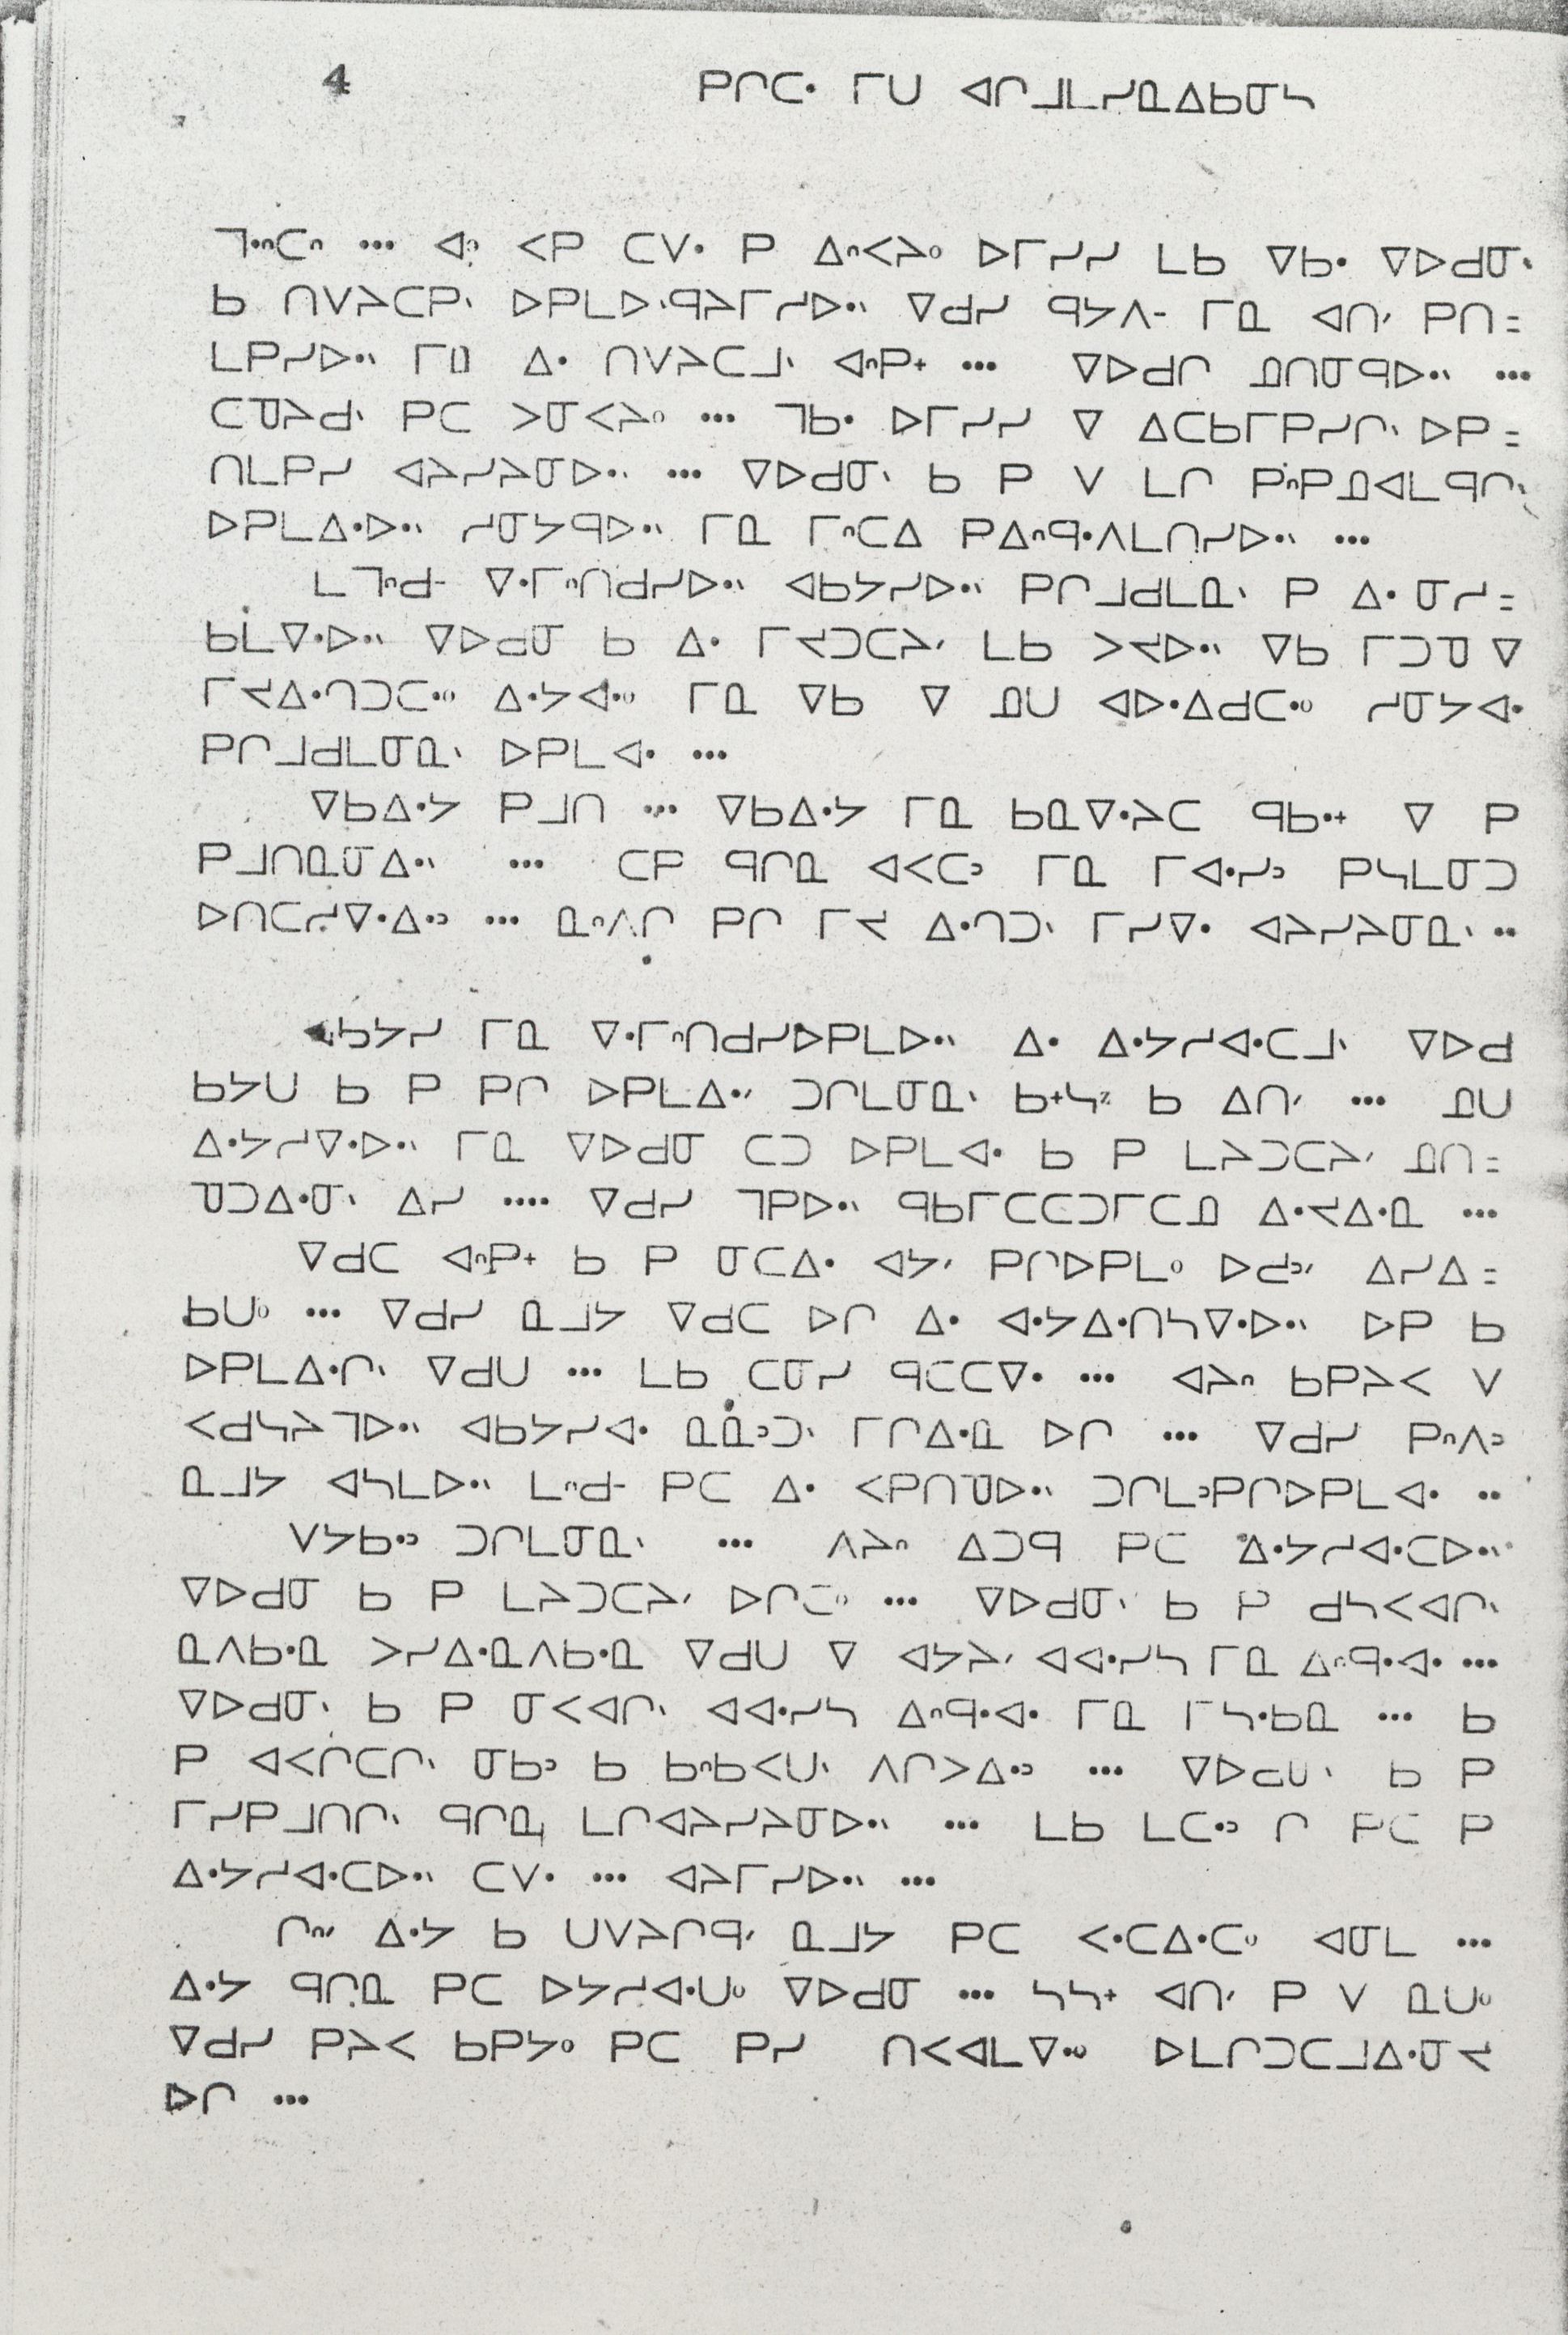 4 ᑭᒋᑕᐧ ᒥᑌ ᐊᒋᒧᒪᓯᓇᐃᑲᓂᓴ
ᒣᐧᐢᑕᐢ ... ᐊᐢ ᐸᑭ ᑕᐯᐧ ᑭ ᐃᐢᐸᔨᐤ ᐅᒥᓯᓯ ᒪᑲ ᐁᑲᐧ ᐁᐅᑯᓂᐠ
ᑲ ᑎᐯᔨᑕᑭᐠ ᐅᑭᒪᐅᐠᑫᔨᒥᓱᐅᐧᐠ ᐁᑯᓯ ᑫᔭᐱᐨ ᒥᓇ ᐊᑎᐟ ᑭᑎ=
ᒪᑭᓯᐅᐧᐠ ᒥᓇ ᐃᐧ ᑎᐯᔨᑕᒧᐠ ᐊᐢᑭᕀ ... ᐁᐅᑯᒋ ᓄᑎᓂᑫᐅᐧᐠ ...
ᑕᓀᔨᑯᐠ ᑭᑕ ᐳᓂᐸᔨᐤ ... ᒣᑲᐧ ᐅᒥᓯᓯ ᐁ ᐃᑕᑲᒥᑭᓯᒋᐠ ᐅᑭ=
ᑎᒪᑭᓯ ᐊᔨᓯᔨᓂᐅᐧᐠ ... ᐁᐅᑯᓂᐠ ᑲ ᑭ ᐯ ᒪᒋ ᑭᐢᑭᓄᐊᒪᑫᒋᐠ
ᐅᑭᒪᐃᐧᐅᐧᐠ ᓱᓂᔭᑫᐅᐧᐠ ᒥᓇ ᒥᐢᑕᐃ ᑭᐃᐢᑫᐧᐱᒪᑎᓯᐅᐧᐠ ...
ᒪ ᒣᐢᑯᐨ ᐁᐧᒥᐢᑎᑯᓯᐅᐧᐠ ᐊᑲᔭᓯᐅᐧᐠ ᑭᒋᒧᑯᒪᓇᐠ ᑭ ᐃᐧ ᓂᓱ=
ᑲᒪᐁᐧᐅᐧᐠ ᐁᐅᑯᓂ ᑲ ᐃᐧ ᒥᔪᑐᑕᔨᐟ ᒪᑲ ᐳᔪᐅᐧᐠ ᐁᑲ ᒥᑐᓀ ᐁ
ᒥᔪᐃᐧᒋᑐᑕᐧᐤ ᐃᐧᔭᐊᐧᐤ ᒥᓇ ᐁᑲ ᐁ ᓄᑌ ᐊᐅᐧᐃᑯᑕᐧᐤ ᓱᓂᔭᐊᐧ
ᑭᒋᒧᑯᒪᓂᓇᐠ ᐅᑭᒪᐊᐧ ...
ᐁᑲᐃᐧᔭ ᑭᒧᑎ ... ᐁᑲᐃᐧᔭ ᒥᓇ ᑲᓇᐁᐧᔨᑕ ᑫᑲᐧᕀ ᐁ ᑭ
ᑭᒧᑎᓇᓂᐃᐧᐠ ... ᑕᑭ ᑫᒋᓇ ᐊᐸᑕᐣ ᒥᓇ ᒥᐊᐧᓯᐣ ᑭᓴᒪᓂᑐ
ᐅᑎᑕᓱᐁᐧᐃᐧᐣ ... ᓇᐢᐱᒋ ᑭᒋ ᒥᔪ ᐃᐧᒋᑐᐠ ᒥᓯᐁᐧ ᐊᔨᓯᔨᓂᓇᐠ ..
ᐊᑲᔭᓯ ᒥᓇ ᐁᐧᒥᐢᑎᑯᓯᐅᑭᒪᐅᐧᐠ ᐃᐧ ᐃᐧᔭᓱᐊᐧᑕᒧᐠ ᐁᐅᑯ
ᑲᔭᑌ ᑲ ᑭ ᑭᒋ ᐅᑭᒪᐃᐧᐟ ᑐᒋᒪᓂᓇᐠ ᑲᕀᓴᕁ ᑲ ᐃᑎᐟ ... ᓄᑌ
ᐃᐧᔭᓱᐁᐧᐅᐧᐠ ᒥᓇ ᐁᐅᑯᓂ ᑕᑐ ᐅᑭᒪᐊᐧ ᑲ ᑭ ᒪᔨᑐᑕᔨᐟ ᓄᑎ=
ᓀᑐᐃᐧᓂᐠ ᐃᓯ .... ᐁᑯᓯ ᒣᑭᐅᐧᐠ ᑫᑲᒥᑕᑕᑐᒥᑕᓄ ᐃᐧᔪᐃᐧᓇ ...
ᐁᑯᑕ ᐊᐢᑭᕀ ᑲ ᑭ ᓂᑕᐃᐧ ᐊᔭᐟ ᑭᒋᐅᑭᒪᐤ ᐅᑯᐣᐟ ᐃᓯᐃ=
ᑲᑌᐤ ... ᐁᑯᓯ ᓇᒧᔭ ᐁᑯᑕ ᐅᒋ ᐃᐧ ᐊᐧᔭᐃᐧᑎᓴᐁᐧᐅᐧᐠ ᐅᑭ ᑲ
ᐅᑭᒪᐃᐧᒋᐠ ᐁᑯᑌ ... ᒪᑲ ᑕᓂᓯ ᑫᑕᑕᐁᐧ ... ᐊᔨᐢ ᑲᑭᔨᐸ ᐯ
ᐸᑯᓴᔨᒣᐅᐧᐠ ᐊᑲᔭᓯᐊᐧ ᓇᓇᐣᑐᐠ ᒥᒋᐃᐧᓇ ᐅᒋ ... ᐁᑯᓯ ᑭᐢᐱᐣ
ᓇᒧᔭ ᐊᓴᒪᐅᐧᐠ ᒪᐢᑯᐨ ᑭᑕ ᐃᐧ ᐸᑭᑎᓀᐅᐧᐠ ᑐᒋᒪᐣᑭᒋᐅᑭᒪᐊᐧ ..
ᐯᔭᑲᐧᐣ ᑐᒋᒪᓂᓇᐠ ... ᐱᔨᐢ ᐃᑐᑫ ᑭᑕ ᐃᐧᔭᓱᐊᐧᑕᐅᐧᐠ
ᐁᐅᑯᓂ ᑲ ᑭ ᒪᔨᑐᑕᔨᐟ ᐅᒋᑕᐤ ... ᐁᐅᑯᓂᐠ ᑲ ᑭ ᑯᓴᐸᐊᒋᐠ
ᓇᐱᑲᐧᓇ ᐳᓯᐃᐧᓇᐱᑲᐧᓇ ᐁᑯᑌ ᐁ ᐊᔭᔨᐟ ᐊᐊᐧᓯᓴ ᒥᓇ ᐃᐢᑫᐧᐊᐧ ...
ᐁᐅᑯᓂᐠ ᑲ ᑭ ᓂᐸᐊᒋᐠ ᐊᐊᐧᓯᓴ ᐃᐢᑫᐧᐊᐧ ᒥᓇ ᒥᓴᐧᑲᓇ ... ᑲ
ᑭ ᐊᐸᒋᑕᒋᐠ ᓂᑲᐣ ᑲ ᑲᐢᑲᐸᑌᐠ ᐱᒋᐳᐃᐧᐣ ... ᐁᐅᑯᓂᐠ ᑲ ᑭ
ᒥᓯᑭᒧᑎᒋᐠ ᑫᒋᓇ ᒪᒋᐊᔨᓯᔨᓂᐅᐧᐠ ... ᒪᑲ ᒪᑕᐧᐣ ᒋ ᑭᑕ ᑭ
ᐃᐧᔭᓱᐊᐧᑕᐅᐧᐠ ᑕᐯᐧ ... ᐊᔨᒥᓯᐅᐧᐠ ...
ᒋᐢᐟ ᐃᐧᔭ ᑲ ᑌᐯᔨᒋᑫᐟ ᓇᒧᔭ ᑭᑕ ᐸᐧᑕᐃᐧᑕᐤ ᐊᓂᒪ ...
ᐃᐧᔭ ᑫᒋᓇ ᑭᑕ ᐅᔭᓱᐊᐧᑌᐤ ᐁᐅᑯᓂ ... ᓴᓴᕀ ᐊᑎᐟ ᑭ ᐯ ᓇᑌᐤ
ᐁᑯᓯ ᑭᔨᐸ ᑲᑭᔭᐤ ᑭᑕ ᑭᓯ ᑎᐸᐊᒪᐁᐧᐤ ᐅᒪᒋᑐᑕᒧᐃᐧᓂᔪ
ᐅᒋ ...